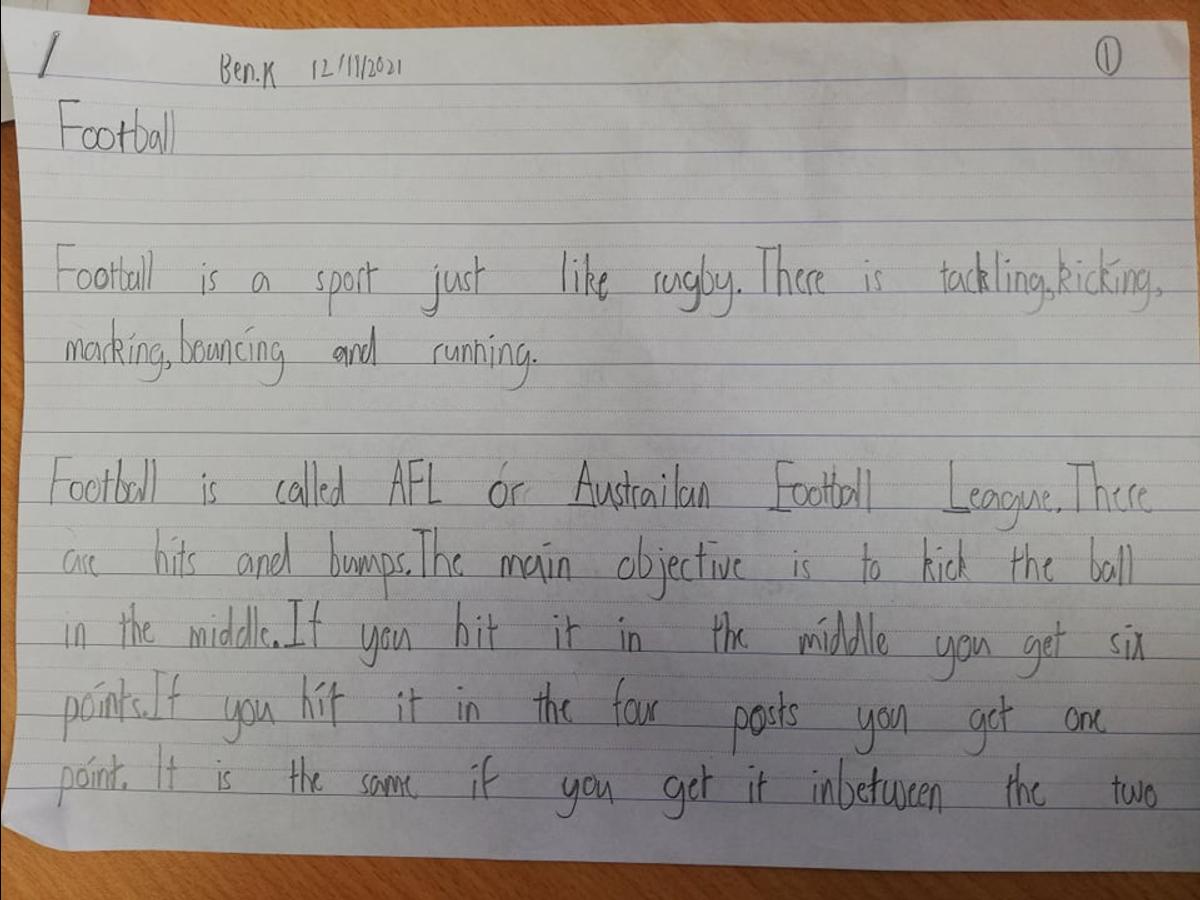 Ben.K 12/11/2021 1
Football
Football is a sport just like rugby. There is tackling, kicking,
marking, bouncing and running.
Football is called AFL or Austrailan Football League. There
are hits and bumps. The main objective is to kick the ball
in the middle. If you hit it in the middle you get six
points. If you hit it in the four posts you get one
point. It is the same if you get it inbetween the two